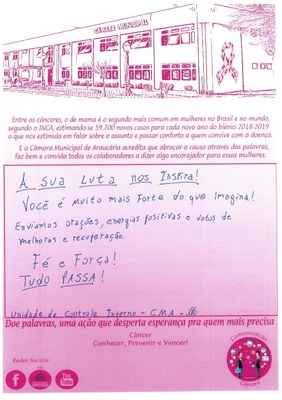 CÂMARA MUNICIPAL
Entre os cânceres, o de mama é o segundo mais comum em mulheres no Brasil e no mundo,
segundo o INCA, estimando-se 59.700 novos casos para cada novo ano do biênio 2018-2019
o que nos estimula em falar sobre o assunto e passar conforto a quem convive com a doença.
E a Câmara Municipal de Araucária acredita que abraçar a causa através das palavras,
faz bem e convida todos os colaboradores a dizer algo encorajador para essas mulheres.
A SUA LUTA nos INSPIRA!
Você é muito mais forte do que imagina!
Enviamos orações, energias positivas e votos de
melhoras e recuperação.
Fé e Força!
TUDO PASSA!
Unidade de Controle Interno - CMA -
Doe palavras, uma ação que desperta esperança pra quem mais precisa
Câncer
Conhecer, Prevenir e Vencer!
Redes Sociais:
You
Tube
Comunicação
Câmara